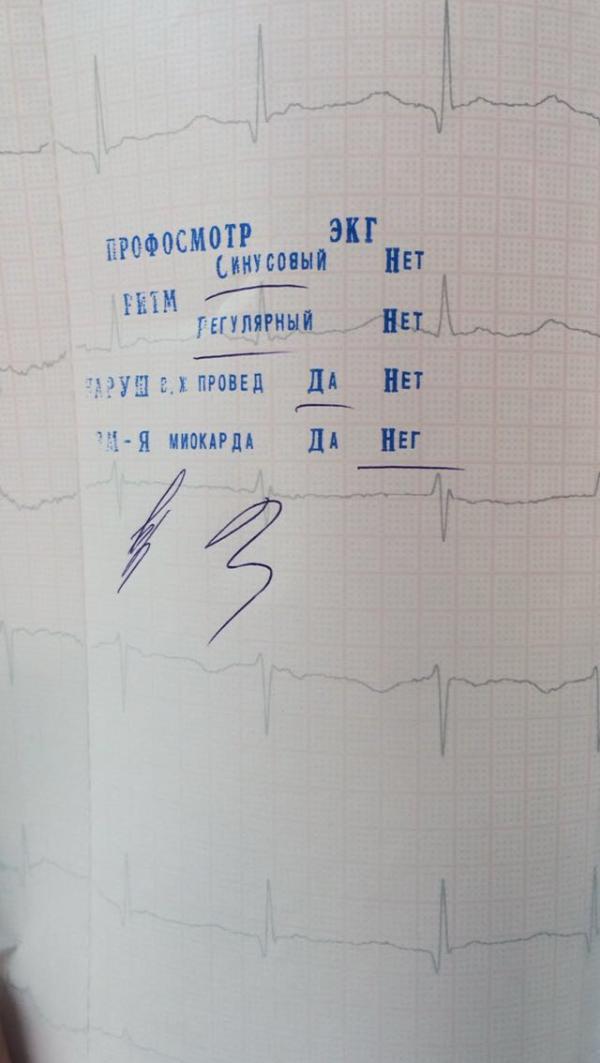 ПРОФОСМОТР ЭКГ
СИНУСОВЫЙ НЕТ
РИТМ
РЕГУЛЯРНЫЙ НЕТ
НАРУШ В.Ж ПРОВЕД ДА НЕТ
ИЗМ-Я МИОКАРДА ДА НЕТ